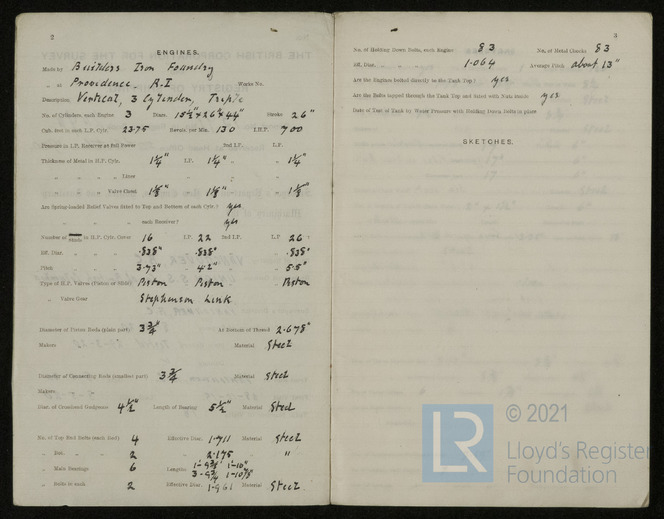 2
ENGINES.
Made by Builders Iron Foundry
" at Providence, R-I Works No.
Description Vertical, 3 Cylinder, Triple
No. of Cylinders, each Engine 3 Diars. 26" 44" Stroke 26"
Cub. feet in each L.P. Cylr. 23.75 Revols. per Min. 130 I.H.P. 700
Pressure in I.P. Receiver at Full Power 2nd I.P. L.P.
Thickness of Metal in H.P. Cylr. 1¼" I.P. 1¼" " 1¼"
" " " Liner " "
" " Valve Chest 1⅛" 1⅛" " 1⅛"
Are Spring-loaded Relief Valves fitted to Top and Bottom of each Cylr.? yes
" " " each Receiver? yes
Number of Studs in H.P. Cylr. Cover 16 I.P. 22 2nd I.P. L.P. 26
Eff. Diar. " .838" .838" .838"
Pitch " 3.73" 4.2" 5.5"
Type of H.P. Valves (Piston or Slide) Piston Piston Piston
" Valve Gear Stephenson Link
Diameter of Piston Rods (plain part) 3¾" At Bottom of Thread 2.678"
Makers Material Steel
Diameter of Connecting Rods (smallest part) 3¾ Material Steel
Makers
Diar. of Crosshead Gudgeons 4½" Length of Bearing 5½" Material Steel
No. of Top End Bolts (each Rod) 4 Effective Diar. 1.711 Material Steel
" Bot. " 2 " 2.175 "
" Main Bearings 6 Lengths
" Bolts in each 2 Effective Diar. 1.961 Material Steel
3
No. of Holding Down Bolts, each Engine 83 No. of Metal Chocks 83
Eff. Diar. 1.064 Average Pitch about 13"
Are the Engines bolted directly to the Tank Top? yes
Are the Bolts tapped through the Tank Top and fitted with Nuts inside yes
Date of Test of Tank by Water Pressure with Holding Down Bolts in place
SKETCHES.
LR
© 2021
Lloyd's Register
Foundation